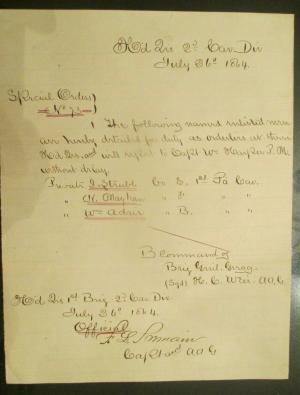 Hd Qrs 2d Cav. Div
July 26th 1864.
Special Orders
No
1 The following named enlisted men
are hereby detailed for duty as orderlies at these
Hd Qrs. and will report to Capt Wm P. M.
without delay.
Private Co 1st Pa Cav.
" " "
" Wm " B. " "
By Command of
Brig Genl. Gregg.
(Sgd) H. C. Weir. A A G
Hd Qrs 1st Brig 2d Cav Div
July 26th 1864.
Official
Capt and A A G